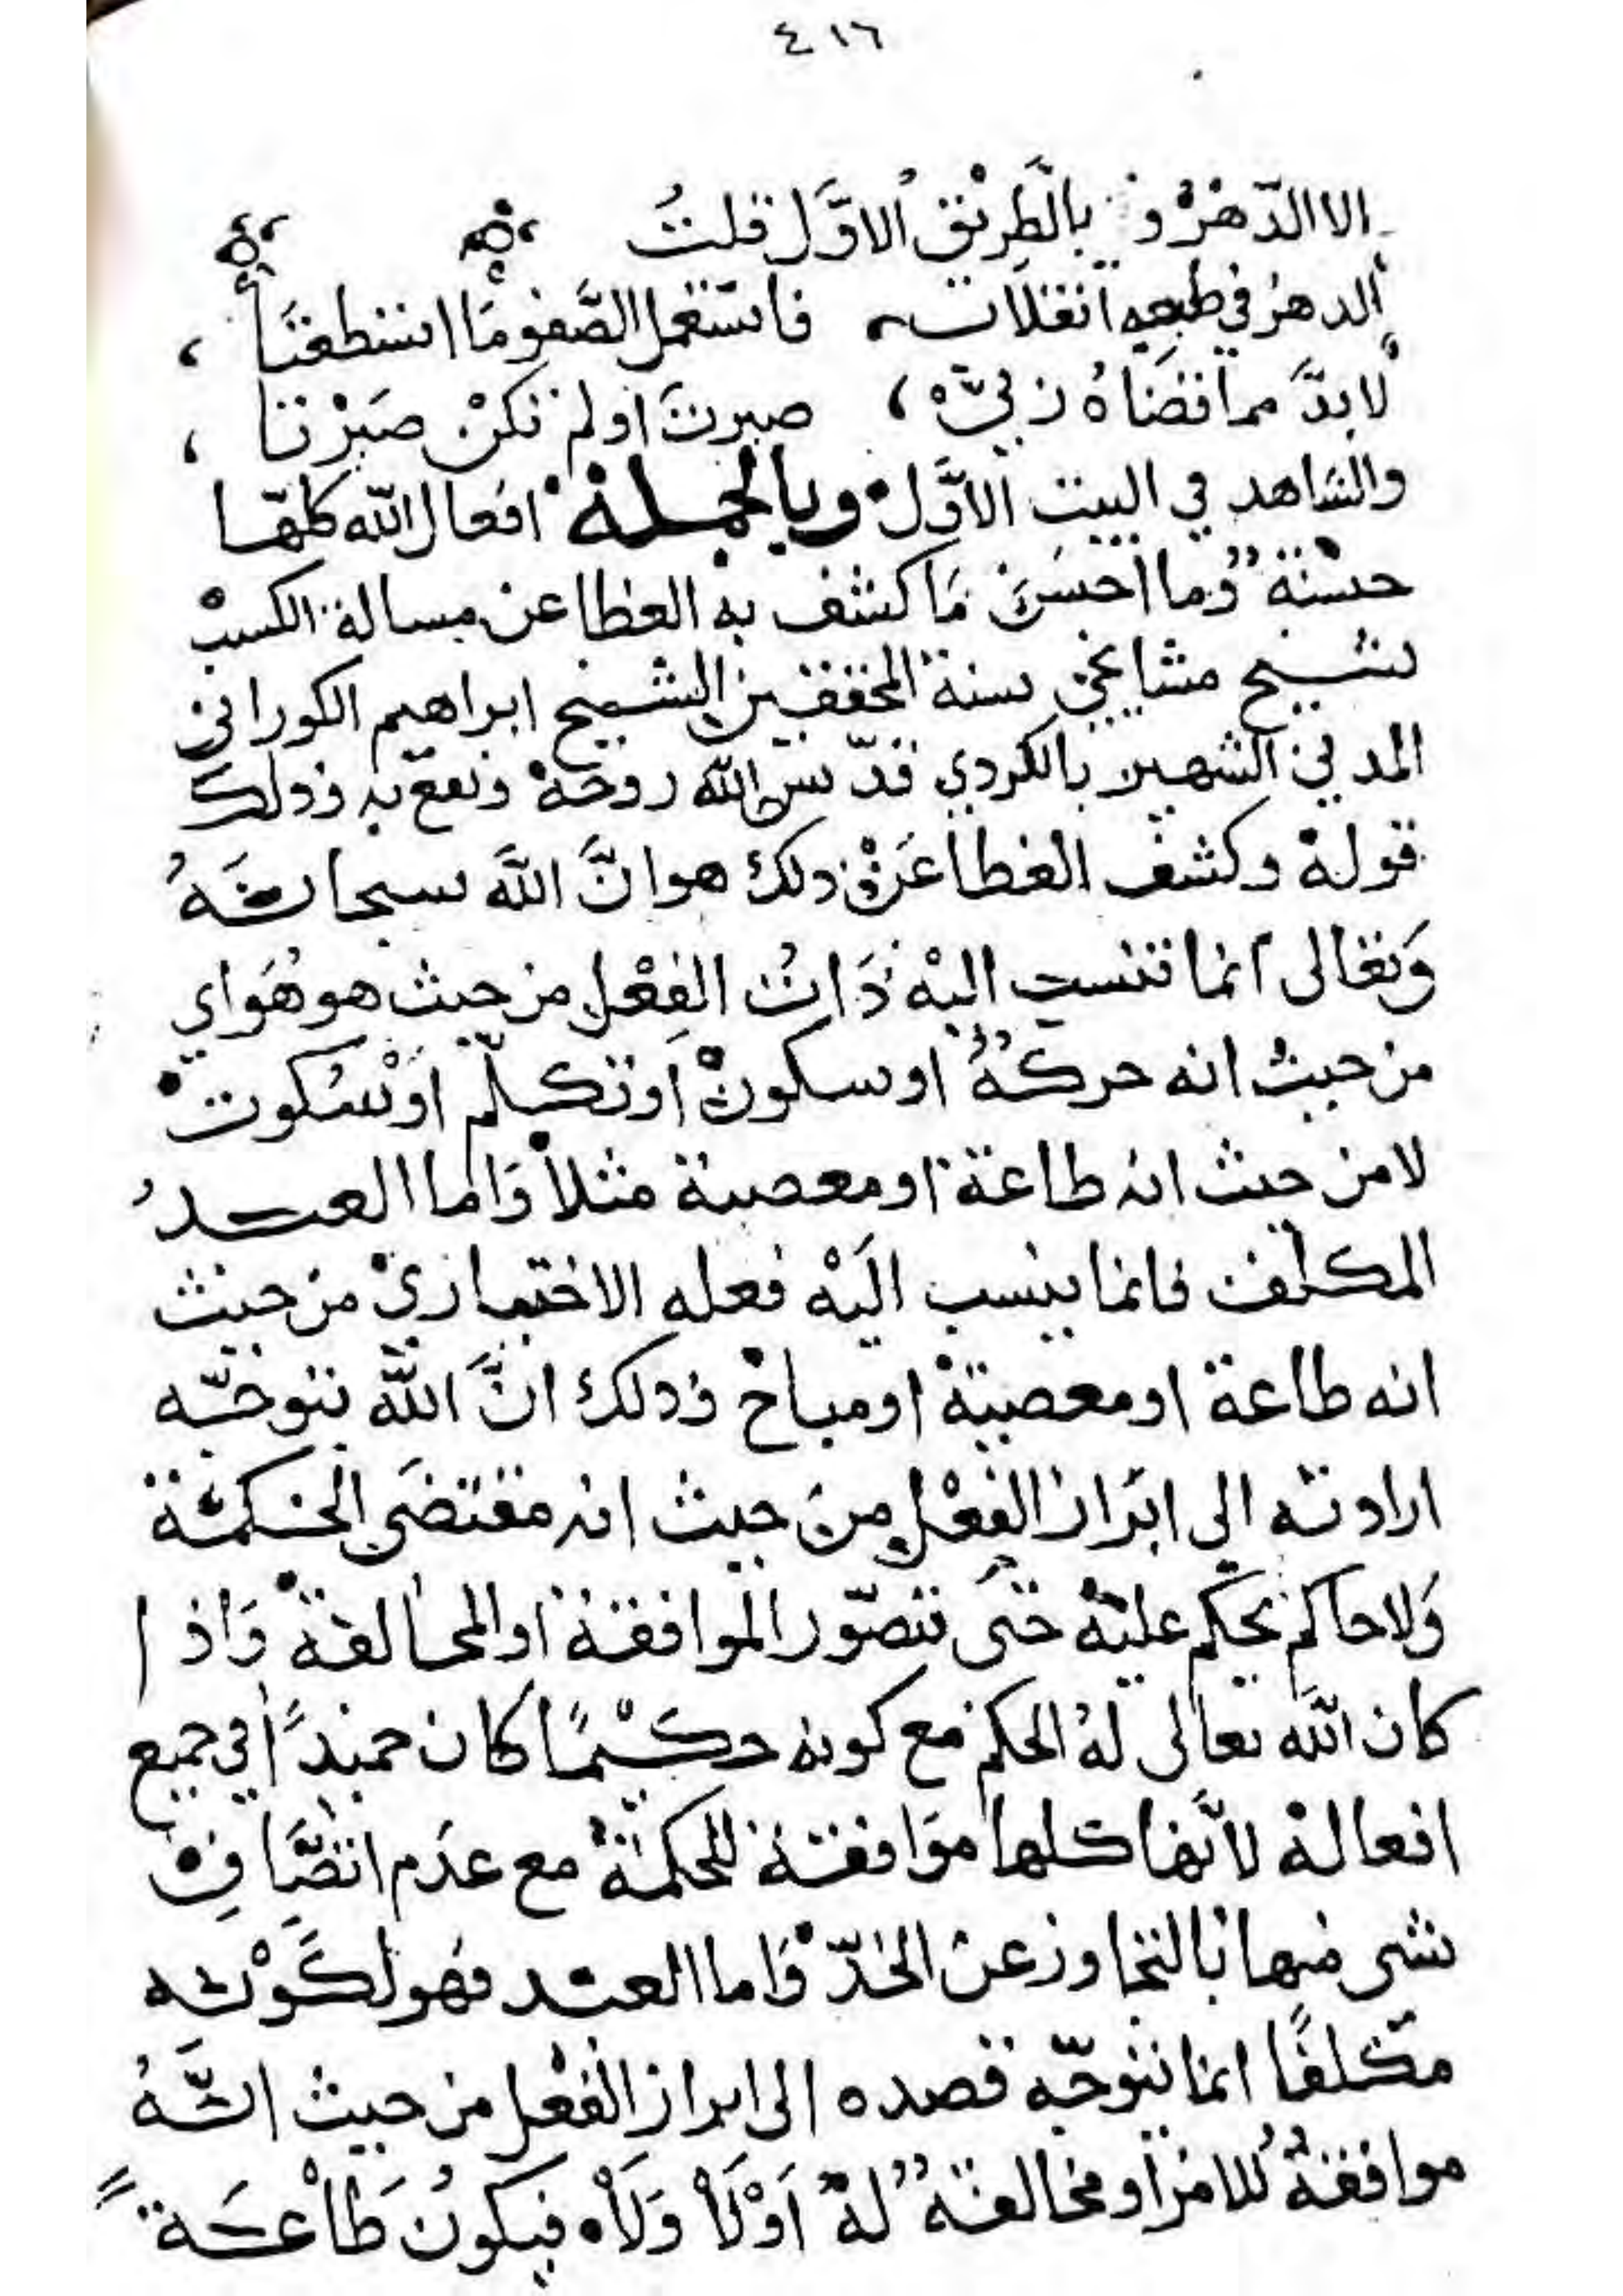 ٤١٦
الا الدّهْرُ و بالَّطِريْقِ الاوَّلِ قلتُ
الدهرُ في طبعِهِ انقلابٌ فاستَعْمل الصَّفو مَا استطعْتَا
لابدَّ مما قضَاهُ رَبِّيْ صبرتَ اولم تكنْ صَبَرْتا
والشاهد في البيت الاَوَّل وبالجملة افعال الله كلّها
حسنة وما احسَنَ مَا كشف به الغطا عن مسالة الكسبْ
شيخ مشايخي سنة المحققين الشيخ ابراهيم الكوراني
المدني الشهير بالكردي قدّس الله روحَهْ ونفع به وذلك
قولهْ وكشف الغطا عَنْ ذلك هو انَّ اللَّه سبحانَهُ
وَتعَالى انما تنسب اليْهِ ذَاتُ الفِعْلِ من حيث هو هُوَ اي
من حيث انه حركةٌ او سكونْ اوْ تكلّم اوْ سُكوت
لا من حيث انه طاعة او معصية مثلاً وَامّا العبدُ
المكلف فانما ينسب الَيْهِ فعله الاختياريْ من حيث
انه طاعة او معصية او مباحْ وذلك انَّ اللَّه بتوجّه
ارادته الى ابْرَاز الفِعْلِ مِنَ حيث انه مقتضَى الحكمة
وَلا حاكم يحكم عليْهِ حَتى تتصوّر الموافقة او المخالفة وَاذا
كان اللَّه تعالى لهُ الحكم مع كونه حكَيْمًا كان حميدًا في جميع
افعالهْ لاَنّها كلها موَافقة للحكمةْ مع عدَم اتصَّافِ
شي منها بالتجاوز عن الحَدّ وَاما العبد فهو لكَوْنه
مكلفًا انما يتوجّه قصده الى ابراز الفعْل من حيث انَّهُ
موافقةٌ للامرْ او مخالفةٌ لهْ اَوْلَاْ وَلَاْ فيكونُ طَاْعَة